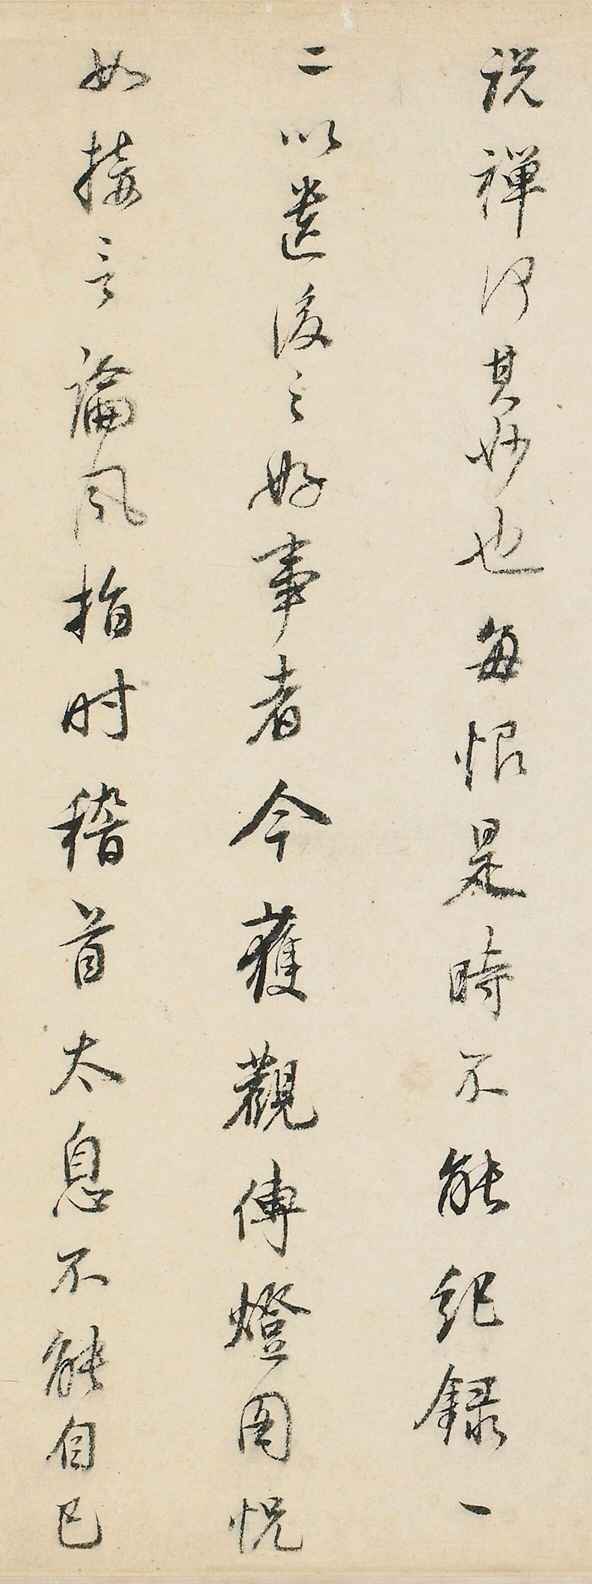 説禪得其妙也每恨是時不能記錄一
二以遺後之好事者今獲觀傳燈圖怳
如接言論風指時稽首太息不能自已